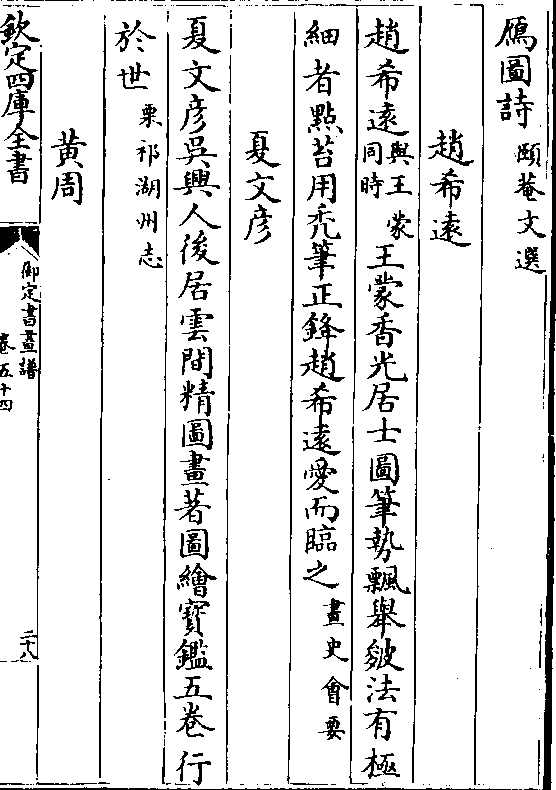 鴈圖詩 頤菴文選
趙希遠
趙希遠 與王蒙同時 王蒙香光居士圖筆勢飄舉皴法有極
細者點苔用禿筆正鋒趙希遠愛而臨之 畫史會要
夏文彦
夏文彦吳興人後居雲間精圖畫著圖繪寳鑑五卷行
於世 栗祁湖州志
黄周
欽定四庫全書
御定書畫譜
卷五十四
二十八